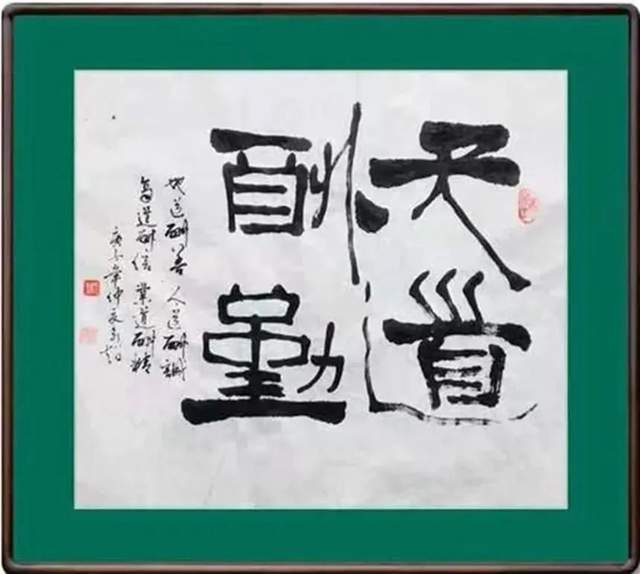 天道
酬勤
地道酬善 人道酬誠
商道酬信 業道酬精